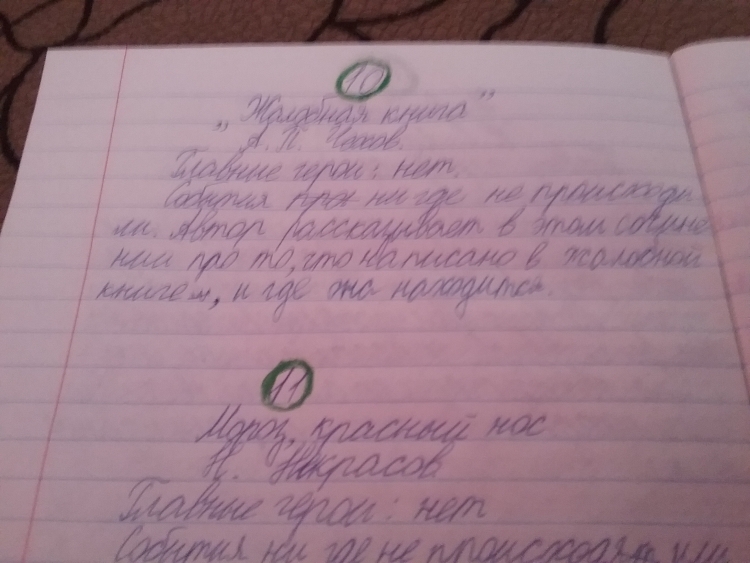 10
„Жалобная книга"
А. П. Чехов.
Главные герои: нет.
События прои ни где не происходи
ли. Автор рассказывает в этом сочине
нии про то, что написано в жалобной
книге, и где жа находится.
11
Мороз, красный нос
Н. Некрасов
Главные герои: нет
События ни где не происходят или